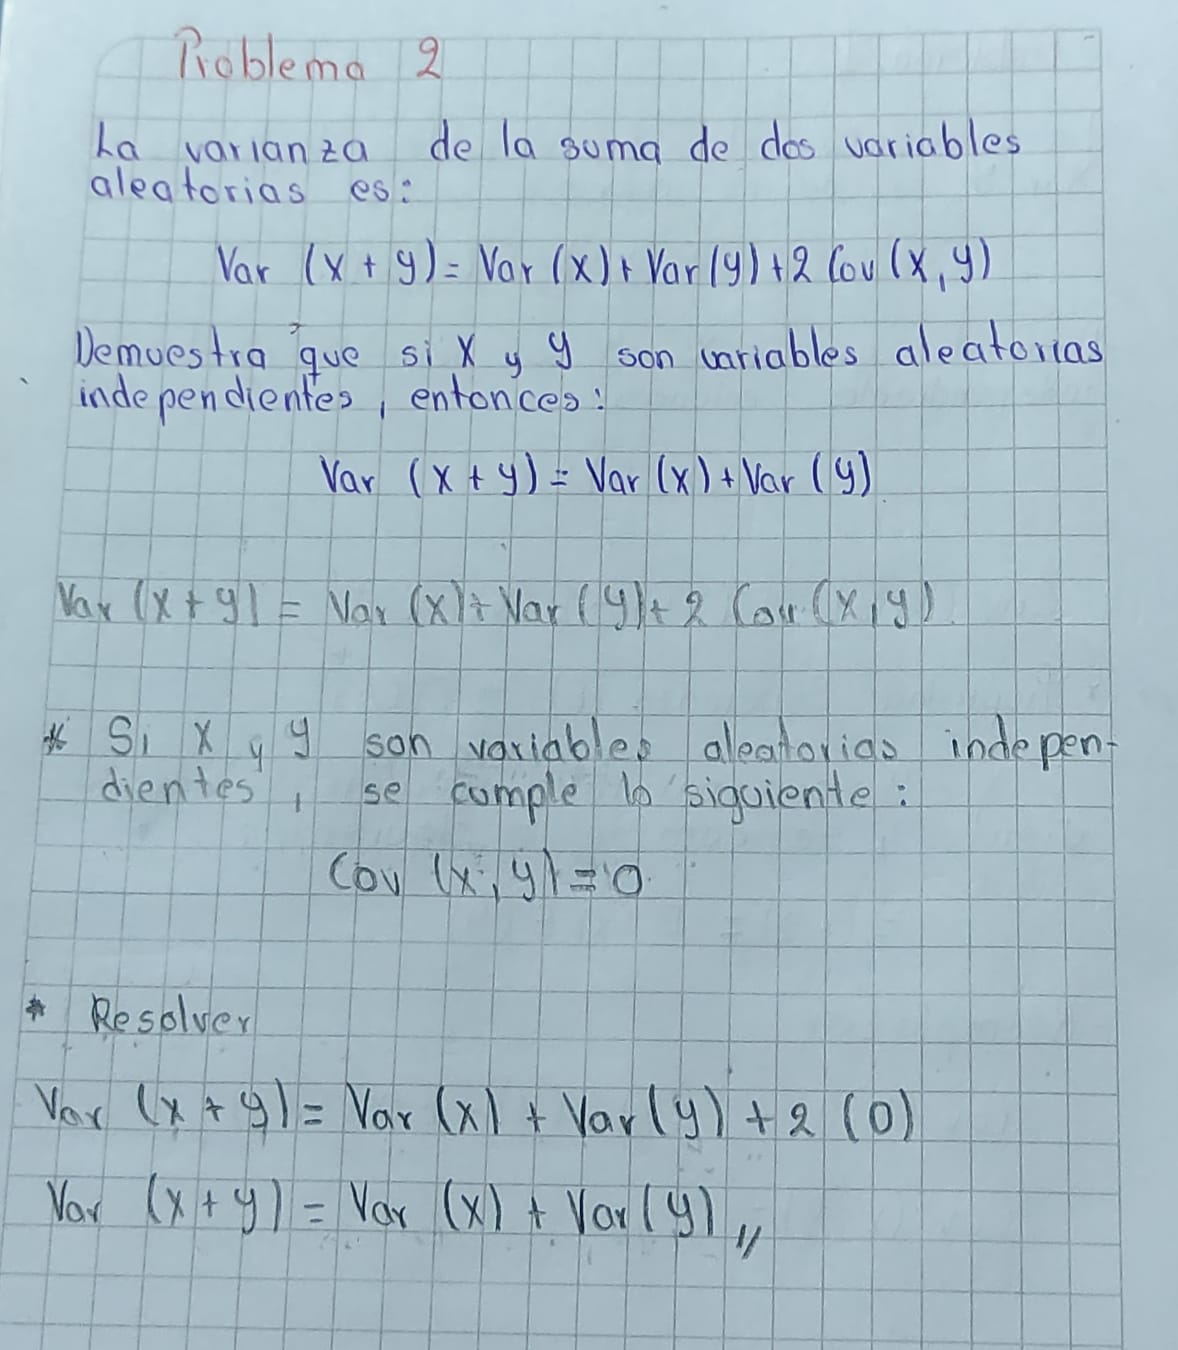 Problema 2
La varianza de la suma de dos variables
aleatorias es:
Var (x + y) = Var (x) + Var (y) + 2 Cov (x, y)
Demuestra que si X y Y son variables aleatorias
independientes, entonces:
Var (x + y) = Var (x) + Var (y)
Var (x + y) = Var (x) + Var (y) + 2 Cov (x, y)
* Si X y Y son variables aleatorias indepen-
dientes, se cumple lo siguiente:
Cov (x, y) = 0
* Resolver
Var (x + y) = Var (x) + Var (y) + 2 (0)
Var (x + y) = Var (x) + Var (y) //